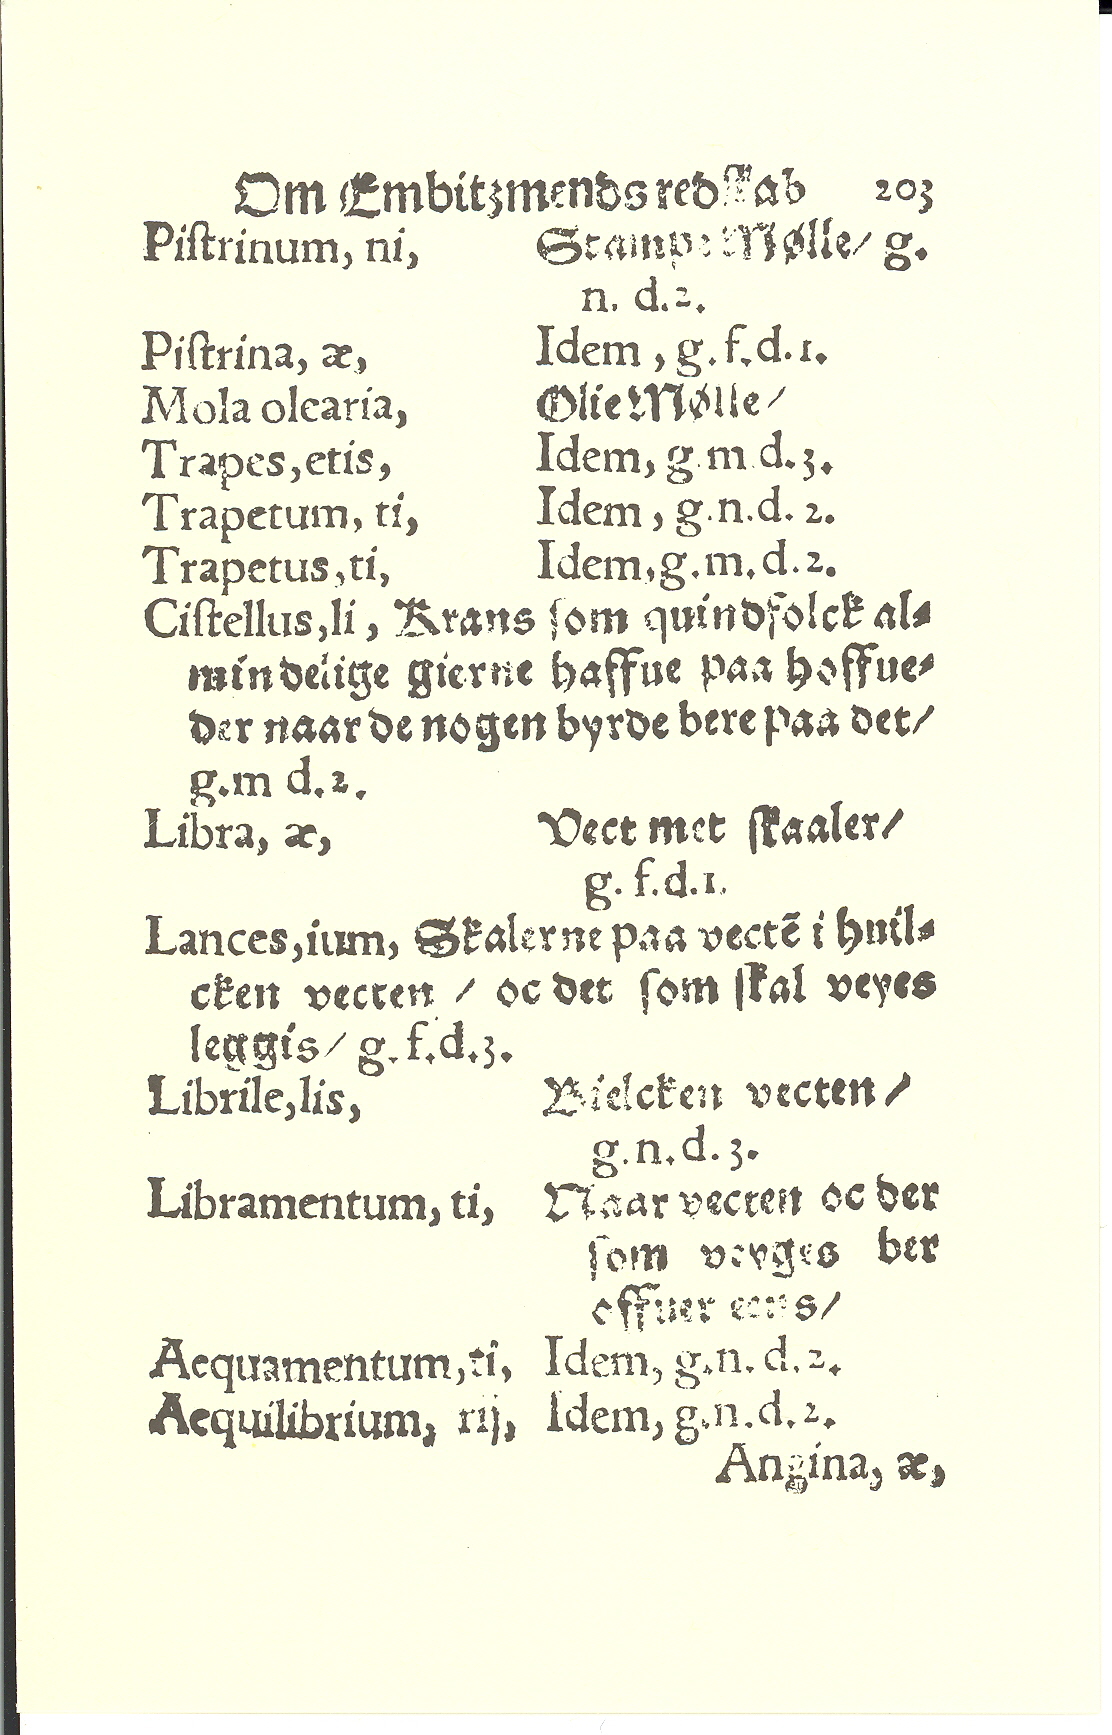 Om Embitzmends redſkab 203
Piſtrinum, ni, Stampe Mølle/ g.
n. d.2.
Piſtrina, æ, Idem, g.f.d.1.
Mola olearia, Olie Mølle/
Trapes,etis, Idem, g.m.d.3.
Trapetum, ti, Idem, g.n.d.2.
Trapetus,ti, Idem,g.m.d.2.
Ciſtellus,li, Krans ſom quindfolck al⸗
mindelige gierne haffue paa hoffue⸗
der naar de nogen byrde bere paa det/
g.m d.2.
Libra, æ, Vect met ſkaaler/
g. f.d.1.
Lances,ium, Skalerne paa vectē i huil⸗
cken vecten / oc det ſom ſkal veyes
leggis/ g.f.d.3.
Librile,lis, Bielcken vecten/
g.n.d.3.
Libramentum, ti, Naar vecten oc der
ſom veyges ber
offuer eens/
Aequamentum,ti, Idem, g.n.d.2.
Aequilibrium, rij, Idem, g.n.d.2.
Angina, æ,